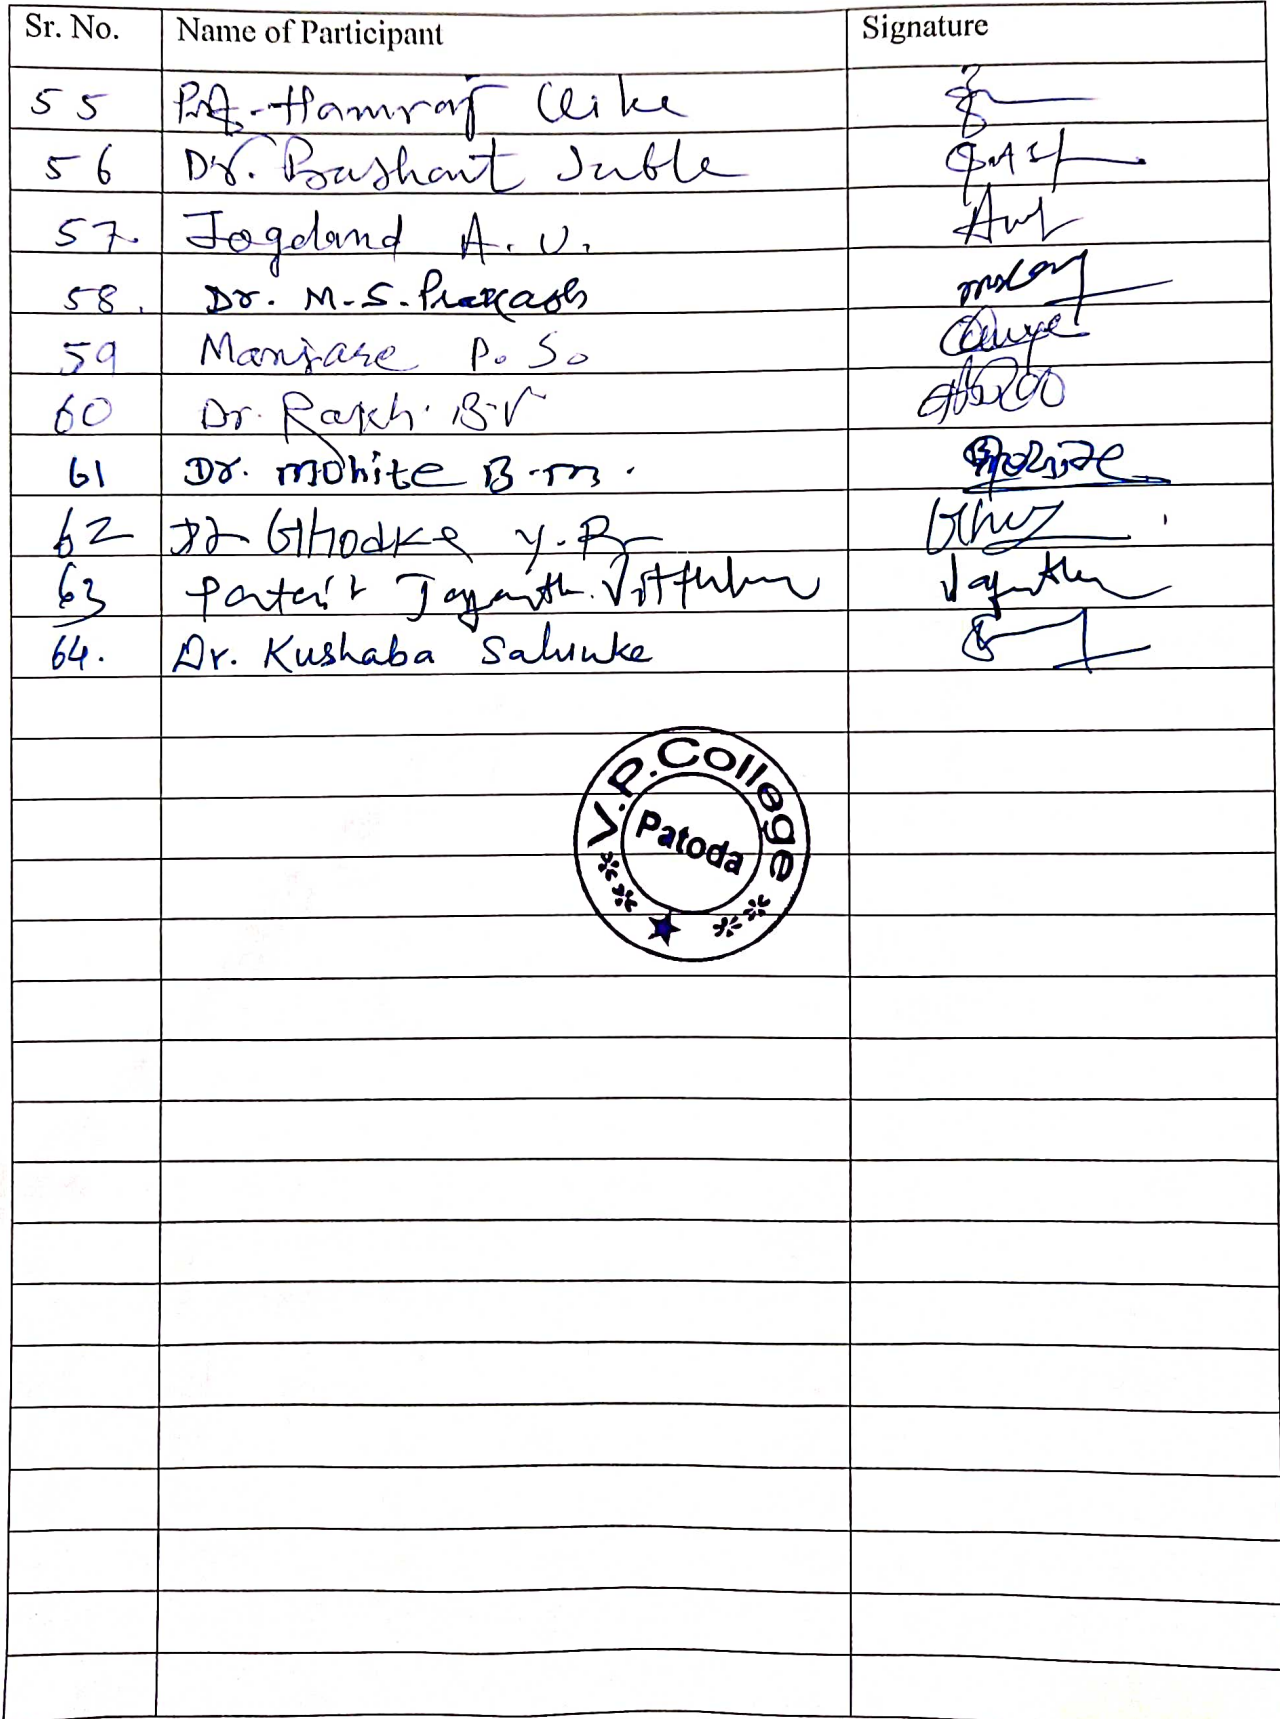 Sr. No. Name of Participant Signature
55 Prof. Hamraj Uike
56 Dr. Prashant Sable
57. Jogdand A. U.
58. Dr. M. S. Prakash
59 Manjare P. S.
60 Dr. Rakh B.V
61 Dr. Mohite B.M. Mohite
62 Ghodke Y. R.
63 Jayanth Vitthal
64. Dr. Kushaba Salunke
V.P. College
Patoda